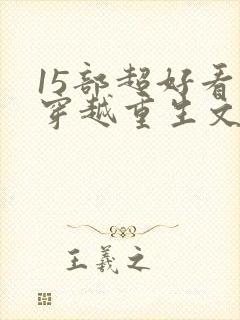 15部超好看
穿越重生文
王羲之